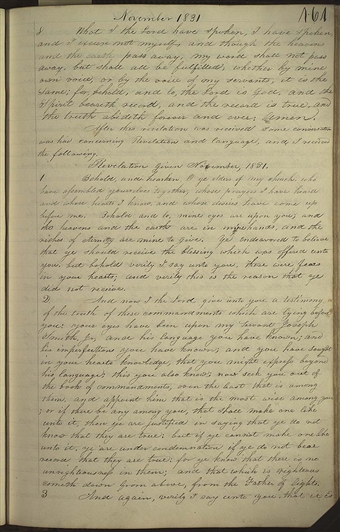 November 1831
161
8 What I the Lord have spoken, I have spoken,
and I excuse not myself, and though the heavens
and the earth pass away, my word shall not pass
away, but shall all be fulfilled, whether by mine
own voice, or by the voice of my servants, it is the
same; for, behold, and lo, the Lord is God, and the
Spirit beareth record, and the record is true, and
the truth abideth forever and ever, Amen.
After this revelation was received some conversation
was had concerning Revelations and language, and I received
the following.
Revelation given November, 1831.
1 Behold, and hearken O ye elders of my church, who
have assembled yourselves together, whose prayers I have heard
and whose hearts I know, and whose desires have come up
before me. Behold and lo, mine eyes are upon you; and
the heavens and the earth are in my hands, and the
riches of eternity are mine to give. Ye endeavored to believe
that ye should receive the blessing which was offered unto
you, but behold verily I say unto you, there were fears
in your hearts; and verily this is the reason that ye
did not receive.
2 And now I the Lord give unto you a testimony
of the truth of these commandments which are lying before
you: your eyes have been upon my servant Joseph
Smith, jr, and his language you have known; and
his imperfections you have known; and you have sought
in your hearts knowledge, that you might express beyond
his language: this you also know: now seek you out of
the book of commandments, even the least that is among
them, and appoint him that is the most wise among you
; or if there be any among you, that shall make one like
unto it, then ye are justified in saying that ye do not
know that they are true: but if ye cannot make one like
unto it, ye are under condemnation if ye do not bear
record that they are true; for ye know that there is no
unrighteousness in them; and that which is righteous
cometh down from above, from the Father of lights.
3 And again, verily I say unto you, that it is